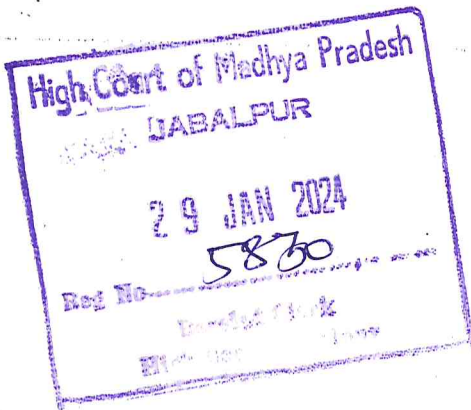 High Court of Madhya Pradesh
JABALPUR
29 JAN 2024
Reg No. 5830
Clerk